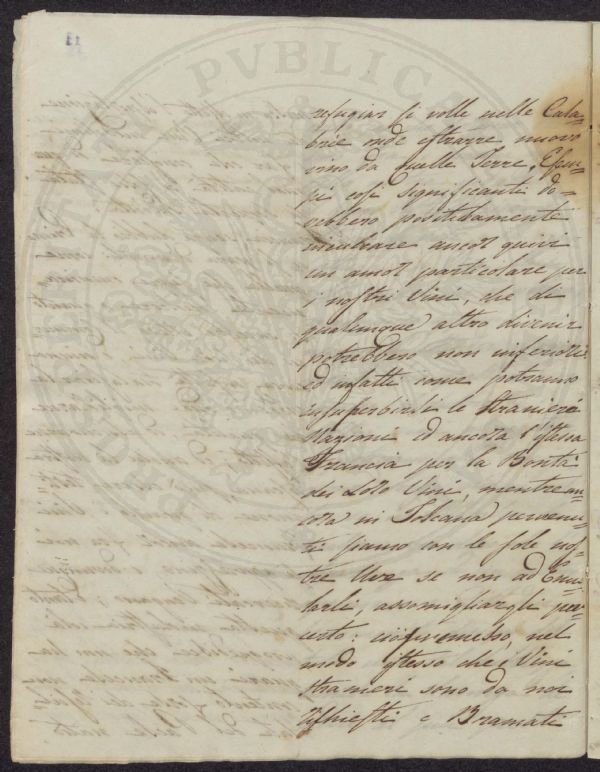 11
refugiar si volle nelle Cala=
brie onde estrarre nuovo
vino da quelle Terre, Esem=
pi così significanti do=
vebbero positivamente
ancor quivi
un amor particolare per
i nostri Vini, che di
qualunque altro divenir
potrebbero non inferiori:
ed infatti come potranno
insuperbirsi le straniere
Nazioni ed ancora l'istessa
Francia per la Bontà
dei Loro Vini, mentre an=
cora in Toscana pervenu=
ti siamo con le sole nos=
tre Uve se non ad Emu=
larli, assomigliargli per
certo: ciò premesso, nel
modo istesso che i Vini
stranieri sono da noi
richiesti e Bramati